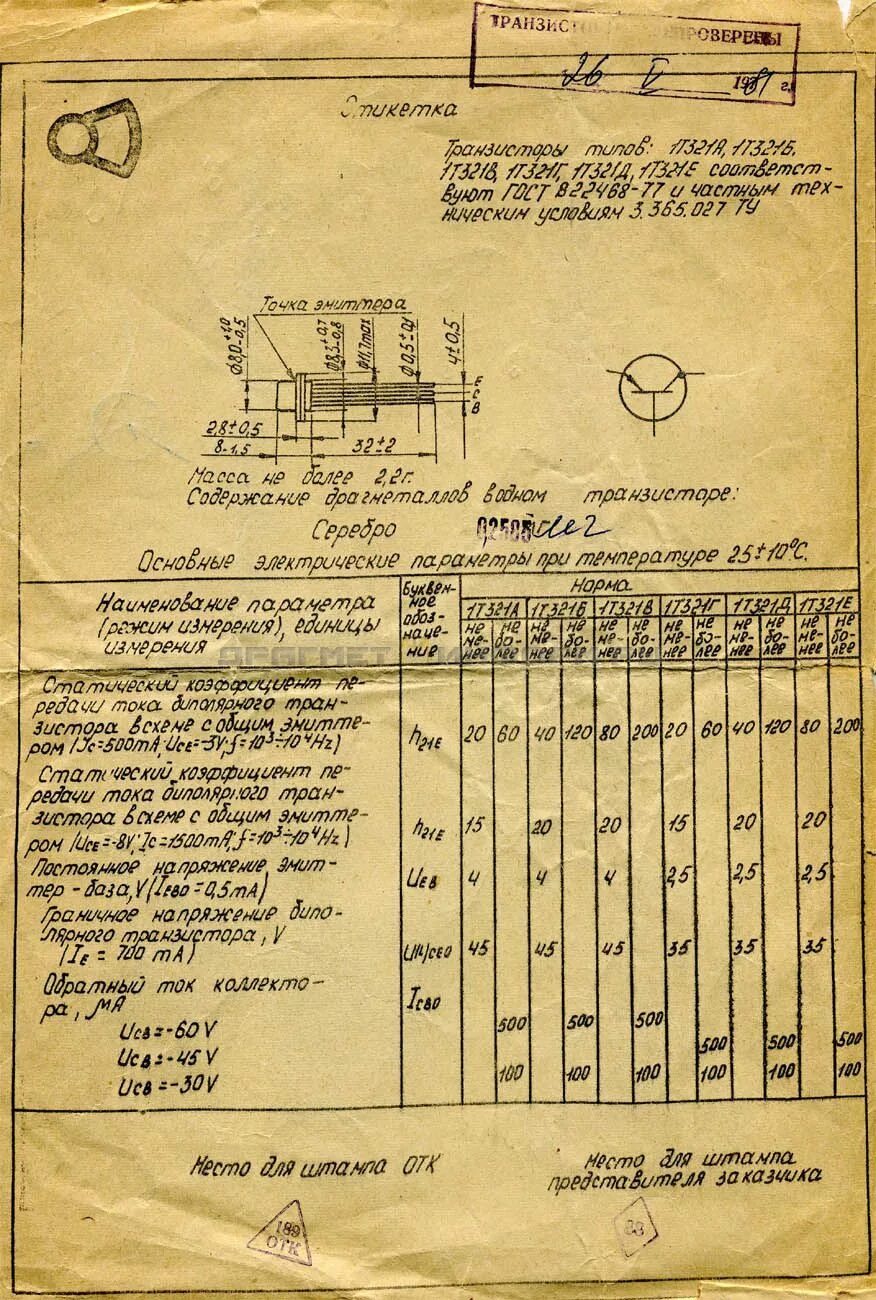 ТРАНЗИСТОРЫ ПЕРЕПРОВЕРЕНЫ
26 V 1981 г.
Этикетка
Транзисторы типов: 1Т321А, 1Т321Б,
1Т321В, 1Т321Г, 1Т321Д, 1Т321Е соответст-
вуют ГОСТ В22468-77 и частным тех-
ническим условиям 3.365.027 ТУ
Точка эмиттера
ф8,0 +1,0 -0,5
ф8,3 +0,7 -0,8
ф11,7max
ф0,5±0,1
4±0,5
E
C
B
2,8±0,5
8-1,5
32±2
Масса не более 2,2г.
Содержание драгметаллов в одном транзисторе:
Серебро
Основные электрические параметры при температуре 25±10°С.
Наименование параметра (режим измерения), единицы измерения
Буквен-ное обоз-наче-ние
Норма
1Т321А 1Т321Б 1Т321В 1Т321Г 1Т321Д 1Т321Е
не ме-нее не бо-лее не ме-нее не бо-лее не ме-нее не бо-лее не ме-нее не бо-лее не ме-нее не бо-лее не ме-нее не бо-лее
Статический коэффициент пе-
редачи тока биполярного тран-
зистора в схеме с общим эмитте-
ром (Ic=500mA; UCE=-3V; f=10³÷10⁴Hz) h21E 20 60 40 120 80 200 20 60 40 120 80 200
Статический коэффициент пе-
редачи тока биполярного тран-
зистора в схеме с общим эмитте-
ром (UCE=-8V; Ic=1500mA; f=10³÷10⁴Hz) h21E 15 20 20 15 20 20
Постоянное напряжение эмит-
тер-база, V (IEBO=0,5mA) UEB 4 4 4 2,5 2,5 2,5
Граничное напряжение бипо-
лярного транзистора, V
(IE = 700 mA) U(L)CEO 45 45 45 35 35 35
Обратный ток коллекто-
ра, μA ICBO
UCB=-60 V 500 500 500
UCB=-45 V 500 500 500
UCB=-30V 100 100 100 100 100 100
Место для штампа ОТК
Место для штампа
представителя заказчика
189
ОТК